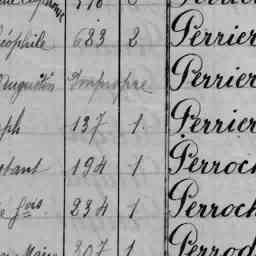 éophile 683 2 Perrier
Augustin Impropre Perrier
ph 137 1. Perrier
stant 194 1. Perroch
fois 234 1. Perroch
307 1 Perrod